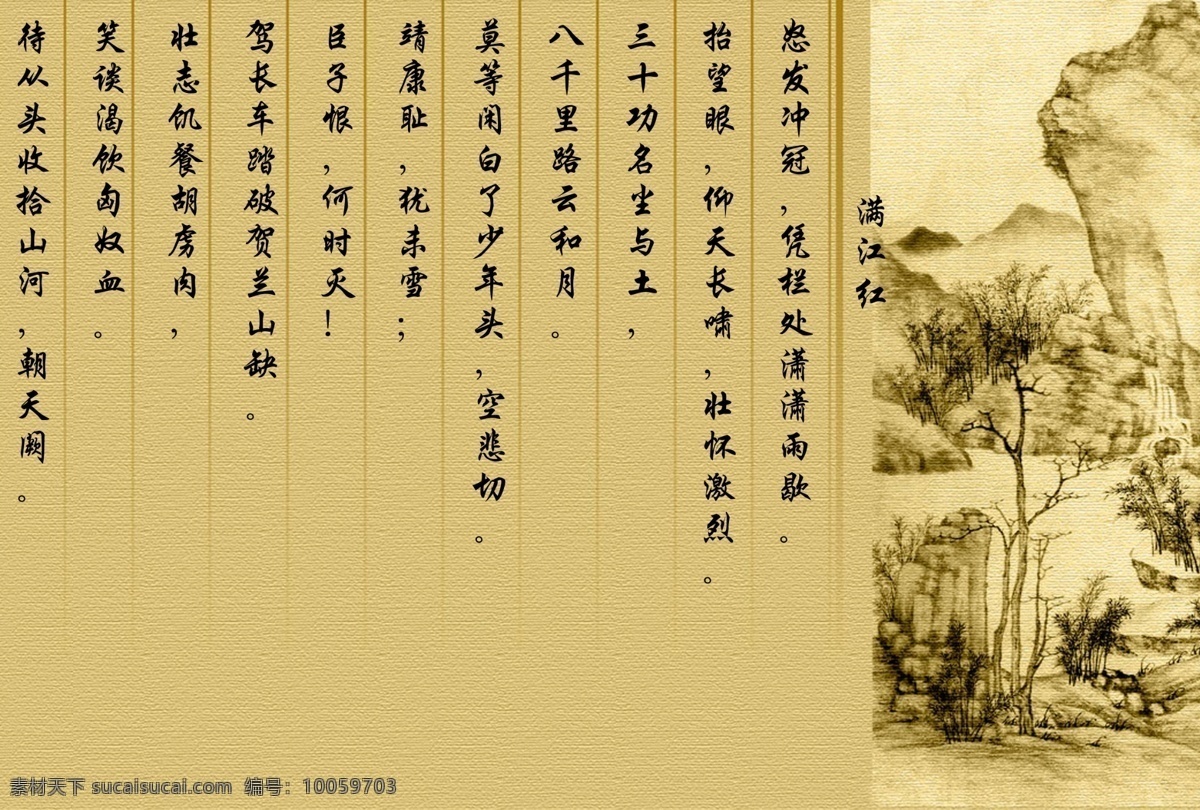 满江红
怒发冲冠，凭栏处潇潇雨歇。
抬望眼，仰天长啸，壮怀激烈。
三十功名尘与土，
八千里路云和月。
莫等闲白了少年头，空悲切。
靖康耻，犹未雪；
臣子恨，何时灭！
驾长车踏破贺兰山缺。
壮志饥餐胡虏肉，
笑谈渴饮匈奴血。
待从头收拾山河，朝天阙。
素材天下 sucaisucai.com 编号：10059703